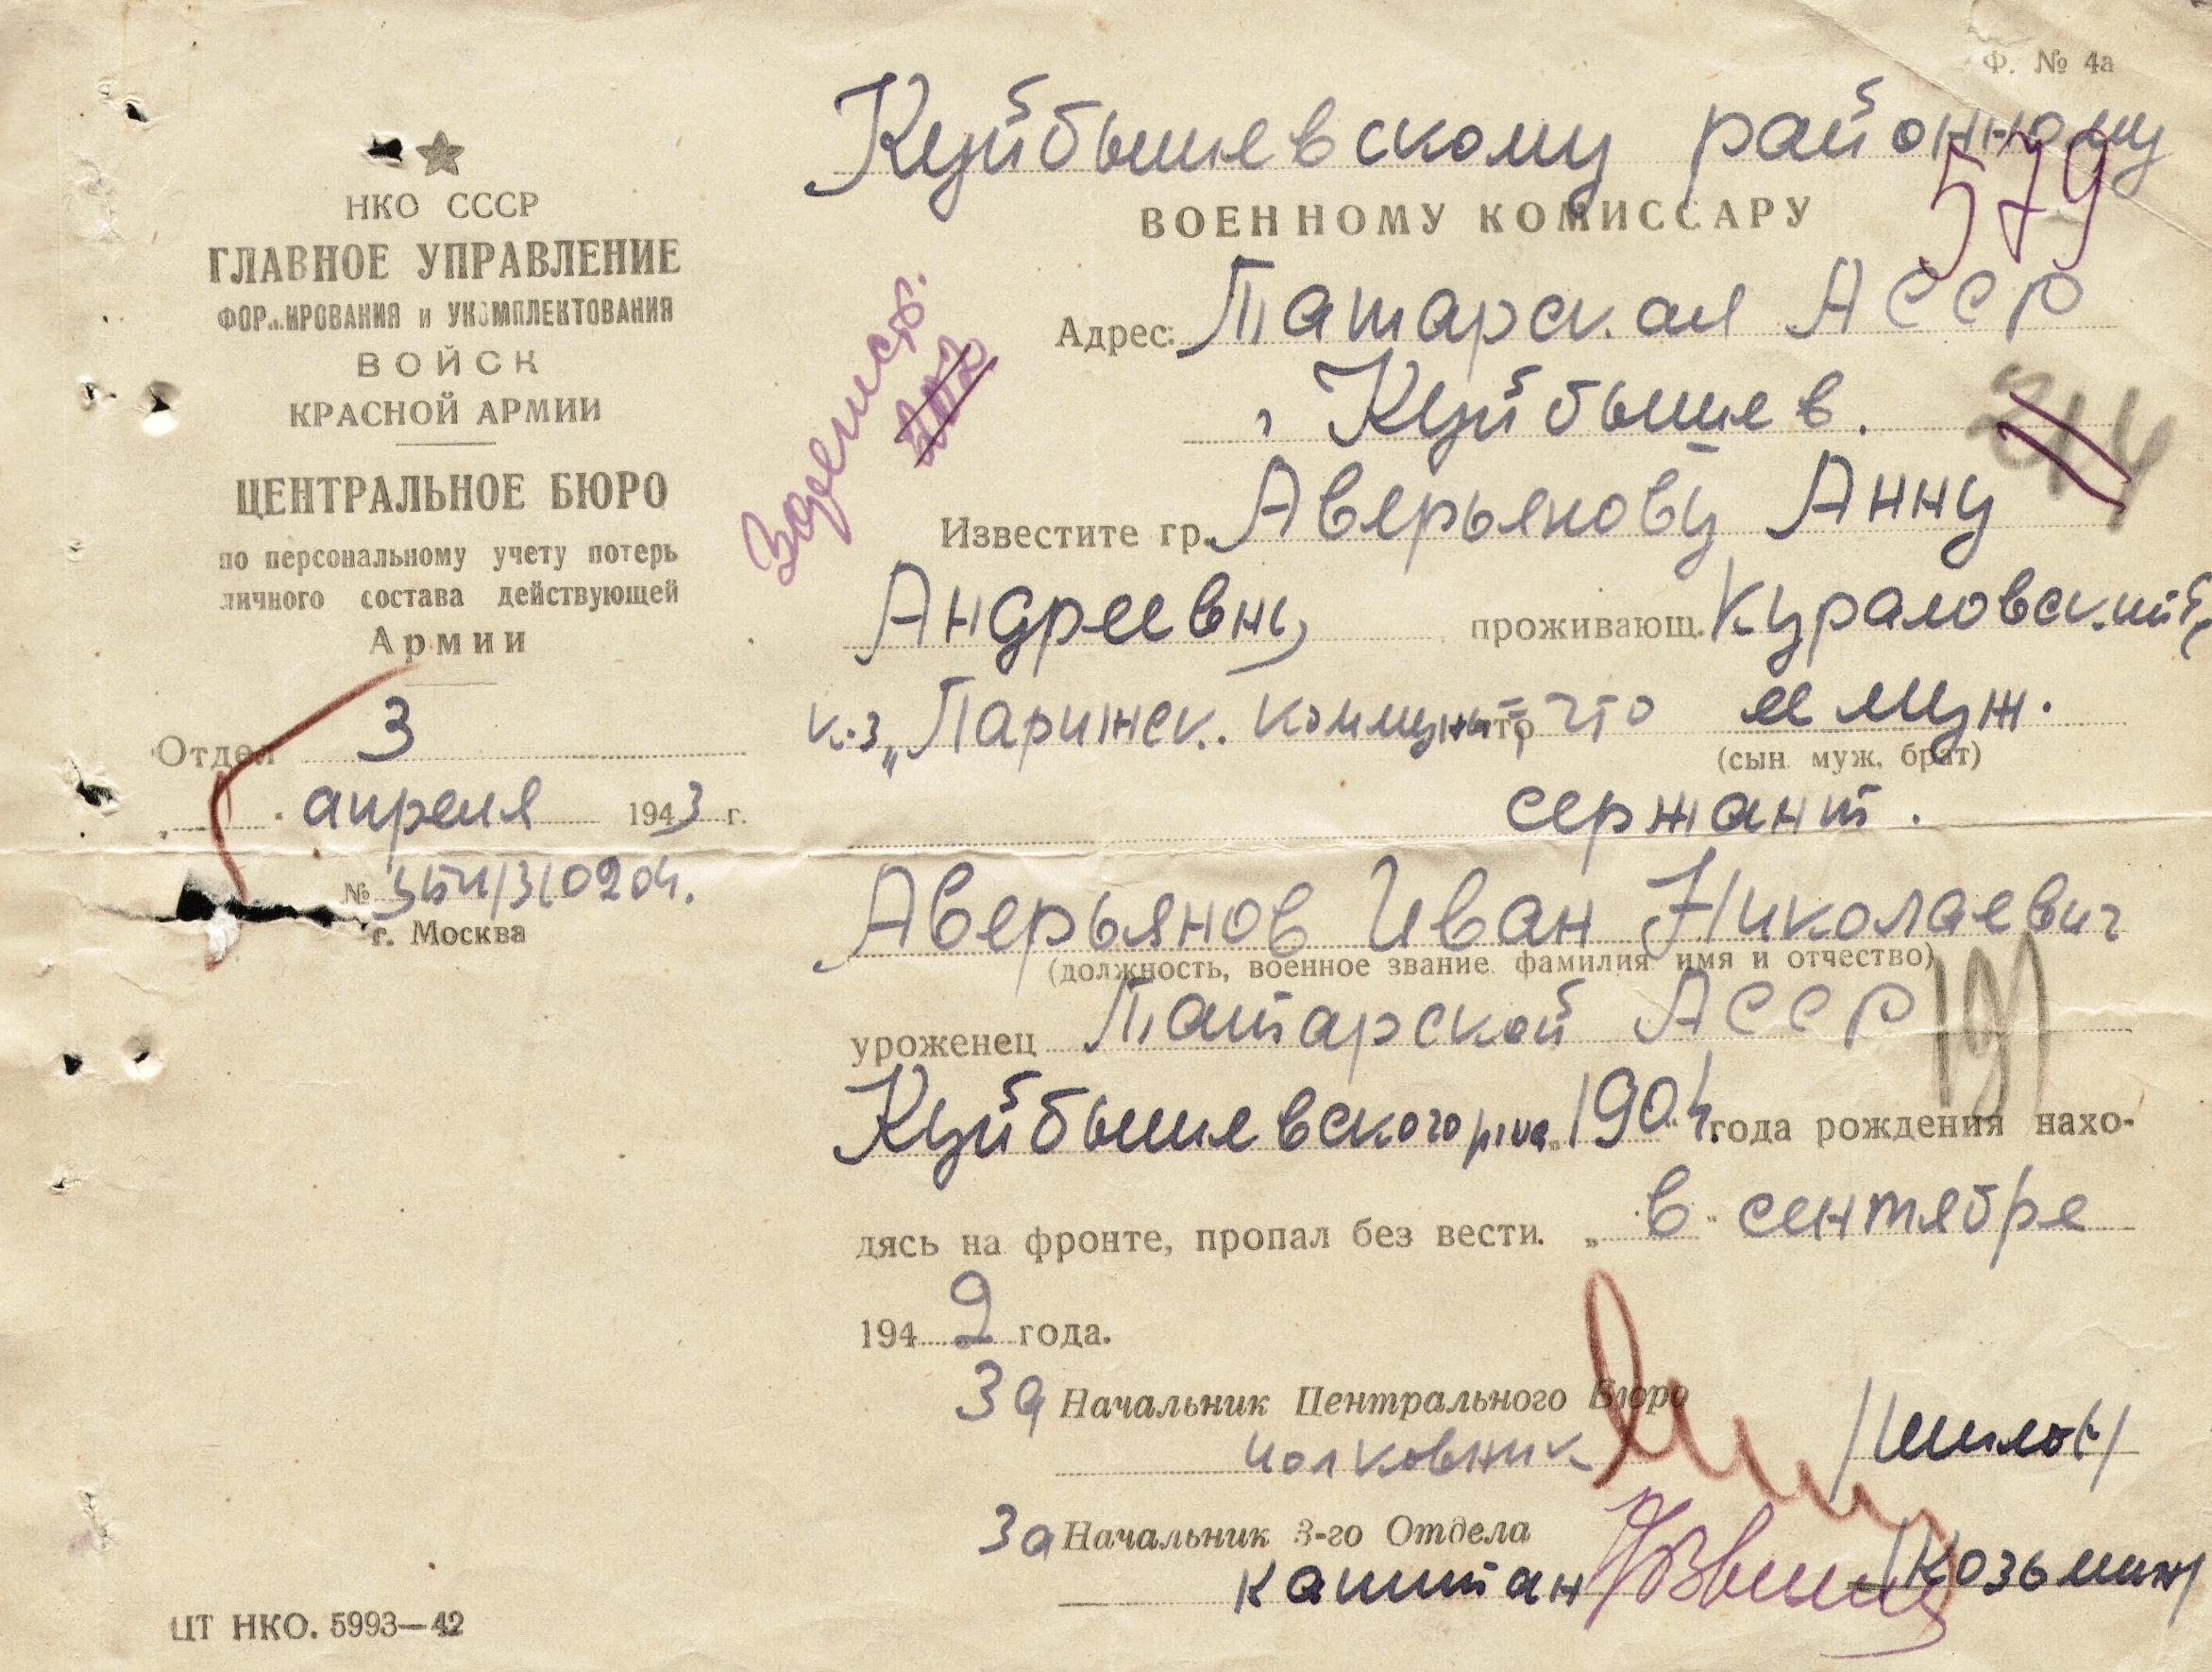 Ф. № 4а
НКО СССР
ГЛАВНОЕ УПРАВЛЕНИЕ
ФОРМИРОВАНИЯ и УКОМПЛЕКТОВАНИЯ
ВОЙСК
КРАСНОЙ АРМИИ
ЦЕНТРАЛЬНОЕ БЮРО
по персональному учету потерь
личного состава действующей
Армии
Отдел 3
апреля 1943 г.
№
г. Москва
Куйбышевскому районному
579
ВОЕННОМУ КОМИССАРУ
Адрес: Татарск. ая АССР
г Куйбышев.
Известите гр. Аверьянову Анну
Андреевну проживающ. Кураловский
к-з „Парижск. коммуны" что что ее муж.
(сын муж, брат)
сержант.
Аверьянов Иван Николаевич
(должность, военное звание фамилия имя и отчество)
191
уроженец Татарской АССР
Куйбышевского р-на 1904 года рождения нахо-
дясь на фронте, пропал без вести. „в" сентябре
1942 года.
За Начальник Центрального Бюро
полковник /Шилов/
За Начальник 3-го Отдела
капитан /Козьмин/
ЦТ НКО. 5993—42